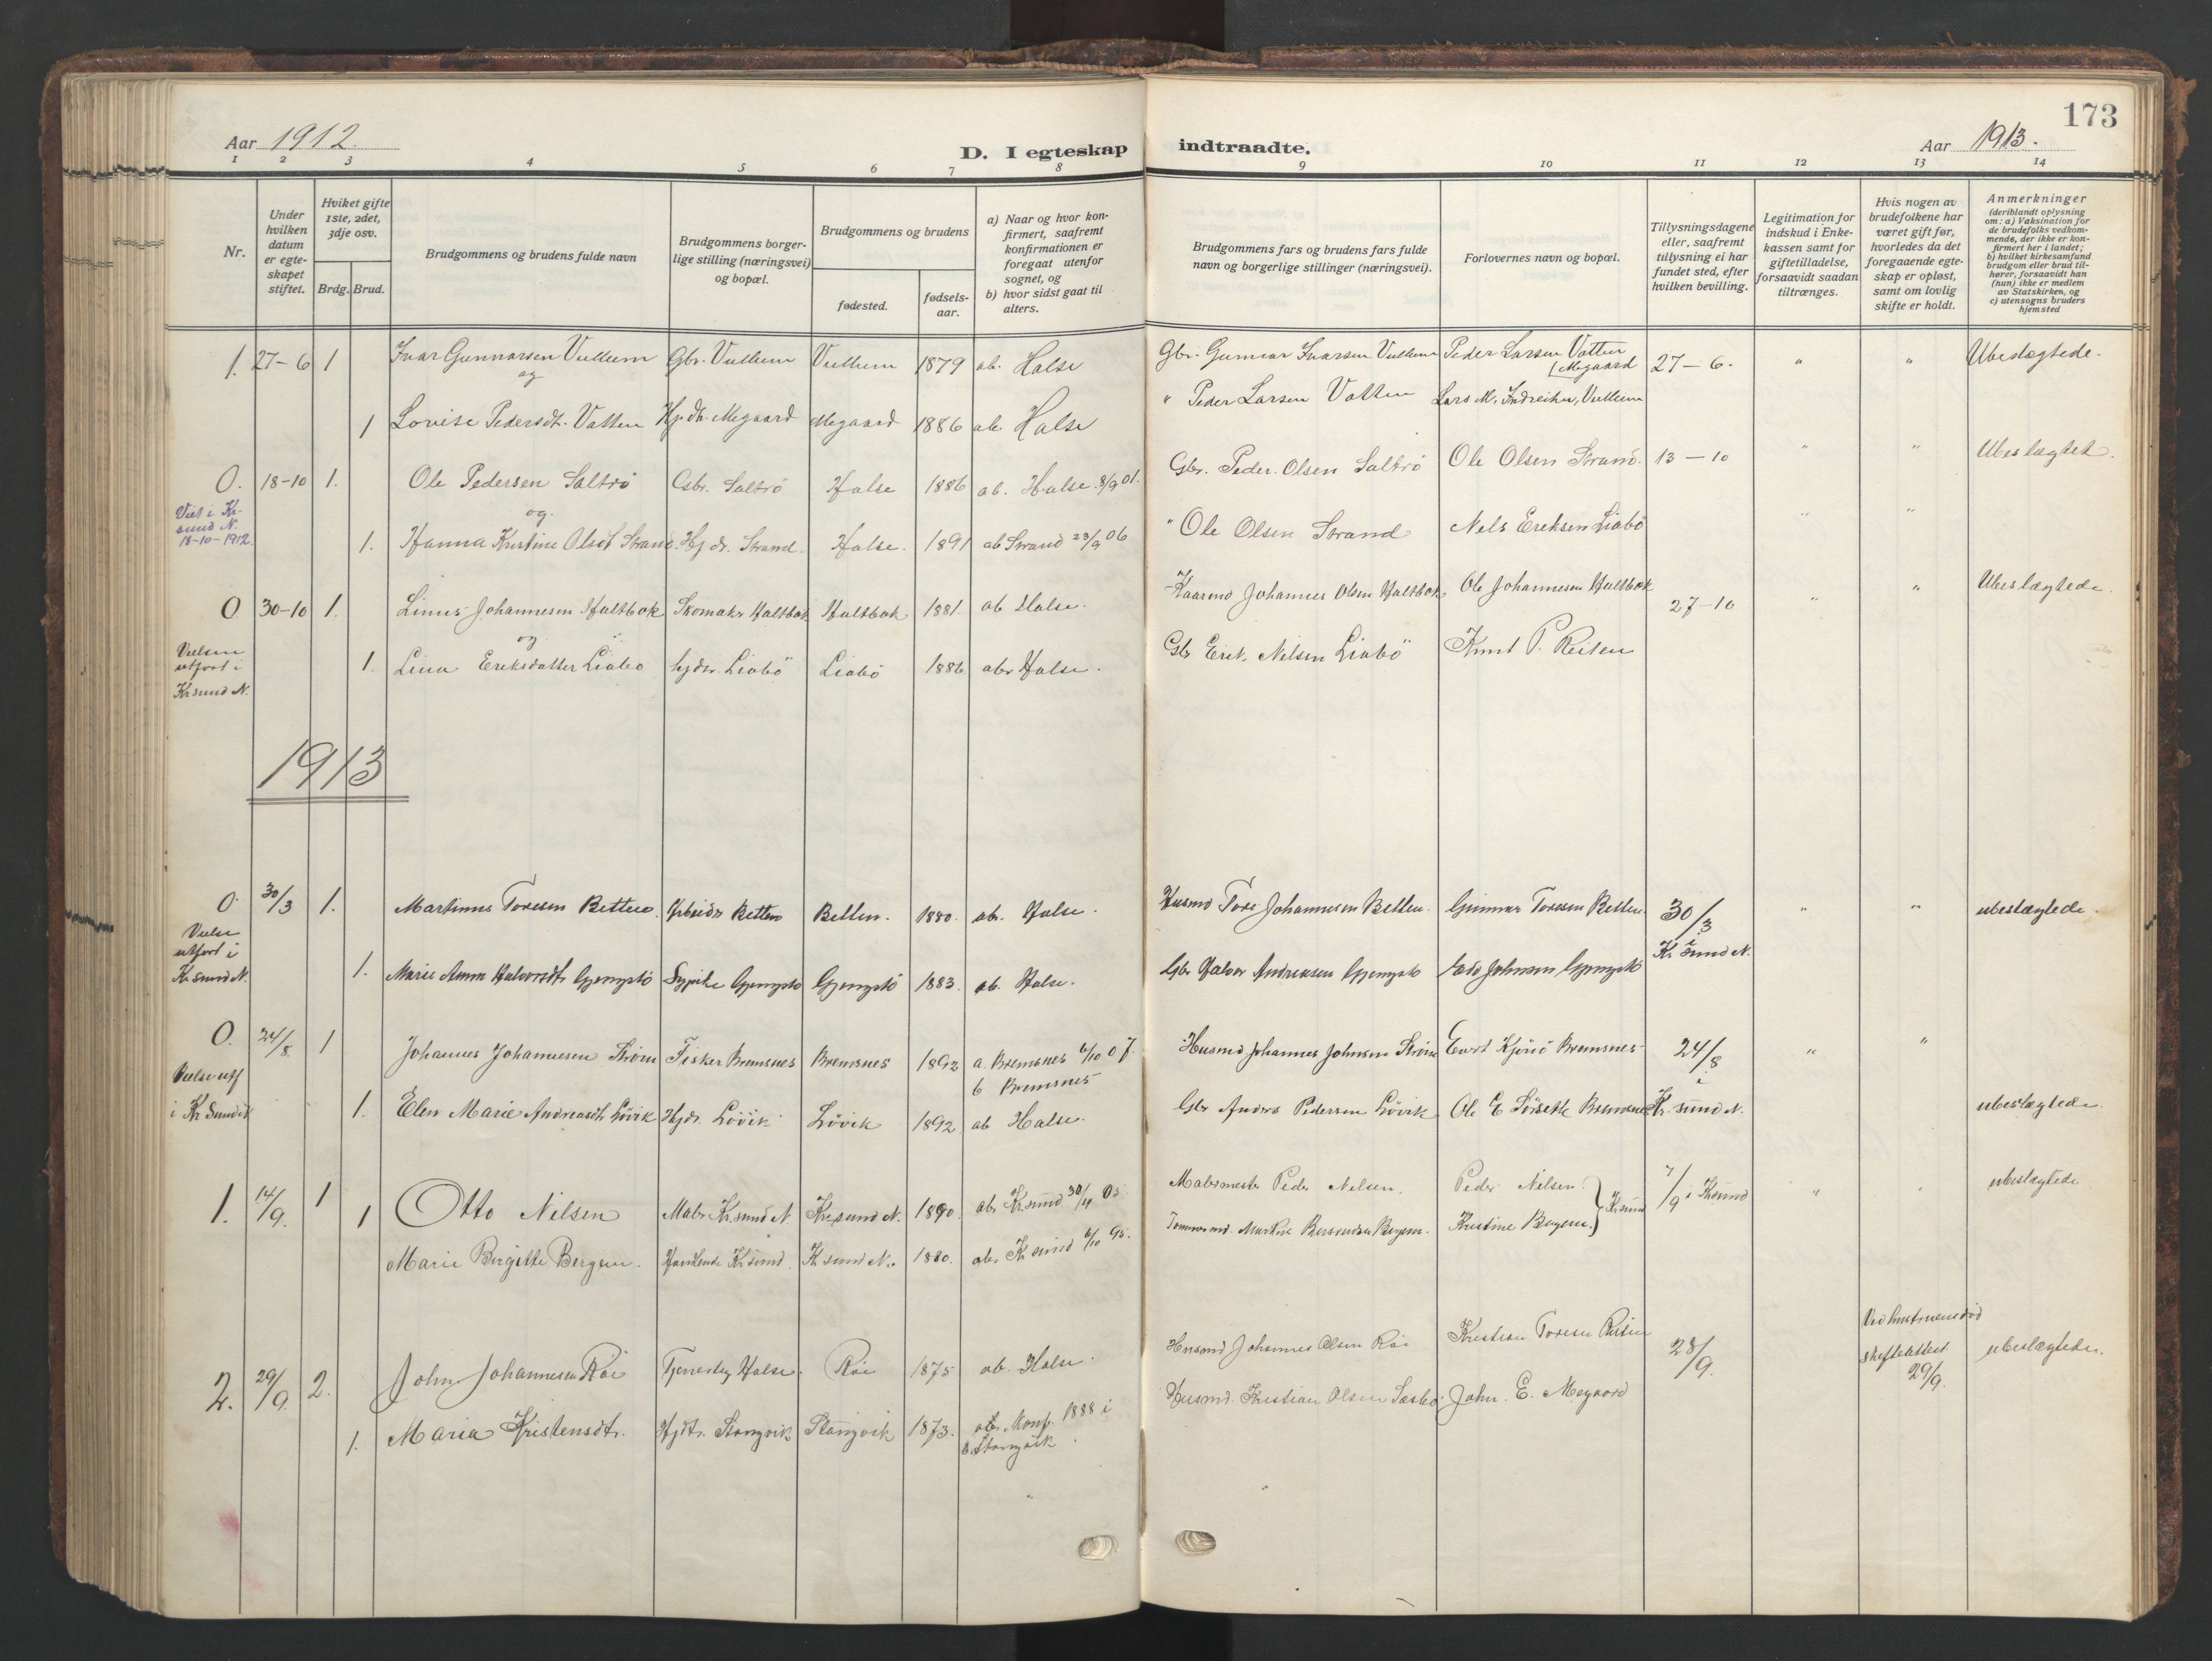 173
Aar 1912.
D. I egteskap indtraadte.
Aar 1913.
1 2 3 4 5 6 7 8 9 10 11 12 13 14
Nr.
Under
hvilken
datum
er egte-
skapet
stiftet.
Hviket gifte
1ste, 2det,
3dje osv.
Brdg. Brud.
Brudgommens og brudens fulde navn
Brudgommens borger-
lige stilling (næringsvei)
og bopæl.
Brudgommens og brudens
fødested.
fødsels-
aar.
a) Naar og hvor kon-
firmert, saafremt
konfirmationen er
foregaat utenfor
sognet, og
b) hvor sidst gaat til
alters.
Brudgommens fars og brudens fars fulde
navn og borgerlige stillinger (næringsvei).
Forlovernes navn og bopæl.
Tillysningsdagene
eller, saafremt
tillysning ei har
fundet sted, efter
hvilken bevilling.
Legitimation for
indskud i Enke-
kassen samt for
giftetilladelse,
forsaavidt saadan
tiltrænges.
Hvis nogen av
brudefolkene har
været gift før,
hvorledes da det
foregaaende egte-
skap er opløst,
samt om lovlig
skifte er holdt.
Anmerkninger
(deriblandt oplysning
om: a) Vaksination for
de brudefolks vedkom-
mende, der ikke er kon-
firmert her i landet;
b) hvilket kirkesamfund
brudgom eller brud til-
hører, forsaavidt han
(hun) ikke er medlem
av Statskirken, og
c) utensogns bruders
hjemsted
1. 27-6 1 Ivar Gunnarsen Vullum Gbr. Vullum Vullum 1879 ab. Halse Gbr. Gunnar Ivarsen Vullum Peder Larsen Vatten (Megaard 27-6. " " Ubeslægtede.
og
1 Lovise Pedersdt. Vatten Hj. dt. Megaard Megaard 1886 ab. Halse " Peder Larsen Vatten Lars M. Indreiten, Vullum
O. 18-10 1. Ole Pedersen Saltrö Gbr. Saltrö Halse 1886 ab. Halse 8/9 01. Gbr. Peder Olsen Saltrö Ole Olsen Strand. 13-10 " " Ubeslægtet.
Viet i Kr-
sund N.
18-10-1912
og.
1. Hanna Kristine Olsdt Strand. Hj dt. Strand. Halse. 1891 ab Strand 23/9 06 " Ole Olsen Strand Nels Ereksen Liabö " "
O 30-10 1. Linus Johannesen Haltbak Skomaker Haltbak Haltbak 1881. ab Halse. Kaarmd Johannes Olsen Haltbak Ole Johannesen Haltbak 27-10 " " Ubeslægtede.
Vielsen
utført i
Kr.sund N.
og
1. Lina Ereksdatter Liabö hjdtr. Liabö Liabö 1886 ab. Halse. Gbr Erik Nilsen Liabö Knut P. Reiten
1913
O. 30/3 1. Martinus Toresen Betten. Arbeidr Betten Betten. 1880. ab. Halse. Husmd Tore Johannesen Betten. Gunnar Toresen Betten 30/3 " " ubeslægtede.
Vielse
utført i
Kr sund N.
i Kr. sund N.
1. Marie Anna Halvorsdtr Gjengstö Sypike Gjengstö Gjengstö 1883. ab. Halse. Gbr Halvor Andreassen Gjengstö Johnsen Gjengstö
O. 24/8. 1 Johannes Johannesen Ström Fisker Bremsnes Bremsnes 1892 a. Bremsnes 6/10 07. Husmd Johannes Johnsen Ström Evert Kjönö Bremsnes 24/8 " "
b Bremsnes
Vielse utf
i Kr Sund N
i
1. Elen Marie Andreasdt. Lövik Hjdr. Lövik Lövik 1892. ab Halse. Gbr Anders Pedersen Lövik Ole E Sörsetle Bremsnes Kr. sund N. ubeslægtede.
1. 14/9. 1 1 Otto Nilsen Maler Kr.sund N. Kr.sund N. 1890. ab. Kr.sund 30/4 05 Malermester Peder Nilsen. Peder Nilsen } Kr.sund 7/9 i Krsund " ubeslægtede
Marie Birgitte Bergem. Kr.sund. Kr sund N. 1880. ab. Kr sund 6/10 95. Tømmermd. Bergem. Kristine Bergem.
2. 29/9 2. John Johannesen Röe Halse. Röe 1875 ab. Halse. Husmd Johannes Olsen Röe Kristian Toresen Reiten 28/9. Ved hustruens död
skifteattest
29/9. ubeslægtede.
1. Maria Kristensdtr. Hjdtr. Stangvik Stangvik 1873. ab. Konf. 1888 i
Stangvik. Husmd. Kristian Olsen Sæsbö John. E. Megaard